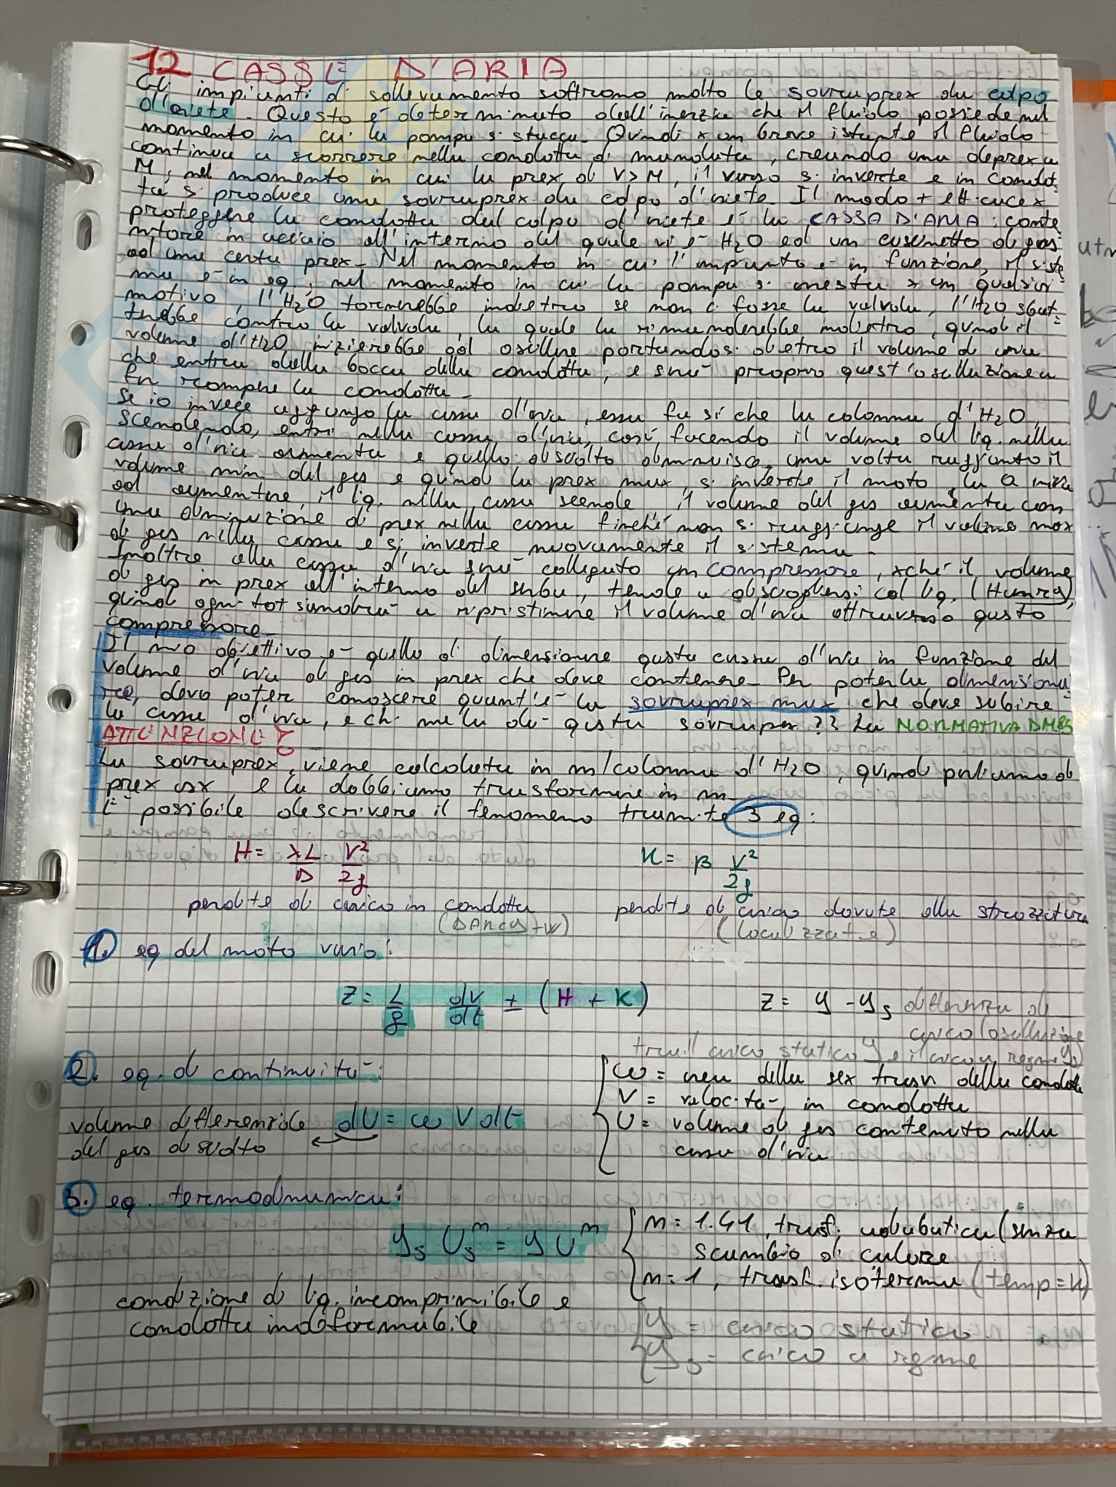 12 CASSE D'ARIA
Gli impianti di sollevamento soffrono molto le sovraprex du colpo
d'ariete. Questo è determinato dall'inerzia che il fluido possiede nel
momento in cui la pompa si stacca. Quindi x un breve istante il fluido
continua a scorrere nella condotta di mandata, creando una deprex a
M, nel momento in cui la prex di V>M, il verso si inverte e in condot
ta si produce una sovraprex du colpo d'ariete. Il modo + efficace x
proteggere la condotta dal colpo d'ariete è la CASSA D'ARIA: conte
nitore in acciaio all'interno del quale vi è H2O ed un cuscinetto di gas
ad una certa prex. Nel momento in cui l'impianto è in funzione, il siste
ma è in eq, nel momento in cui la pompa si arresta x un qualsiasi
motivo, l'H2O tornerebbe indietro se non ci fosse la valvola, l'H2O sbat-
terebbe contro la valvola, la quale la rimanderebbe indietro, quindi il
volume d'H2O inizierebbe ad oscillare portandosi dietro il volume di aria
che entra dalla bocca della condotta, e sarà proprio quest'oscillazione a
far rompere la condotta.
Se io invece aggiungo la cassa d'aria, essa fa sì che la colonna d'H2O
scendendo, entri nella cassa d'aria, così facendo il volume del liq. nella
cassa d'aria aumenta e quello di svolto diminuisce, una volta raggiunto il
volume min del gas e quindi la prex max, si inverte il moto,
ad aumentare il liq. nella cassa scende, il volume del gas aumenta con
una diminuzione di prex nella cassa finché non si raggiunge il volume max
di gas nella cassa e si inverte nuovamente il sistema.
Inoltre alla cassa d'aria sarà collegato un compressore, xché il volume
di gas in prex all'interno del serbu, tende a disciogliersi col liq. (Henry),
quindi ogni tot si andrà a ripristinare il volume d'aria attraverso questo
compressore.
Il mio obiettivo è quello di dimensionare questa cassa d'aria in funzione del
volume d'aria di gas in prex che deve contenere. Per poterla dimensiona
re, devo poter conoscere quant'è la sovraprex max che deve subire
la cassa d'aria, e chi me la dà questa sovraprex?? La NORMATIVA DM85
ATTENZIONE!
La sovraprex, viene calcolata in m/colonna d'H2O, quindi parliamo di
prex ax e la dobbiamo trasformare in m.
È possibile descrivere il fenomeno tramite 3 eq:
H = λL/D V²/2g K = β V²/2g
perdite di carico in condotta perdite di carico dovute alla strozzatura
(DARCY-W) (localizzate)
1. eq del moto vario:
Z = L/g dv/dt ± (H + K) Z = y - ys differenza di
carico (oscillazione
tra il carico statico y e il carico a regime ys)
2. eq. di continuità: ω = area della sex trasv della condotta
V = velocità in condotta
volume differenziale dU = ω V dt U = volume di gas contenuto nella
del gas disciolto cassa d'aria
3. eq. termodinamica:
ys Us^m = y U^m m = 1.41, trasf. adiabatica (senza
scambio di calore
m = 1, trasf. isoterma (temp=k)
condizione di liq. incomprimibile e
condotta indeformabile y = carico statico
ys = carico a regime